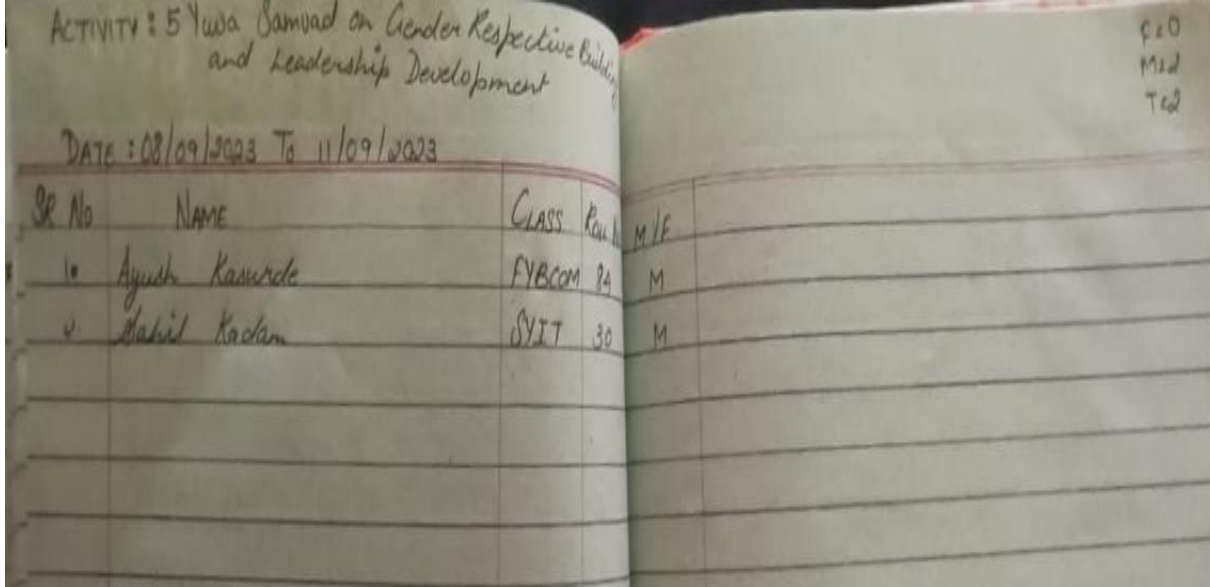 ACTIVITY : 5 Yuva Samvad on Gender Respective Building
and Leadership Development
F=0
M=2
T=2
DATE : 08/09/2023 To 11/09/2023
SR No NAME CLASS Roll M/F
1. Ayush Kasurde FYBCOM 84 M
2. Sahil Kadam SYIT 30 M